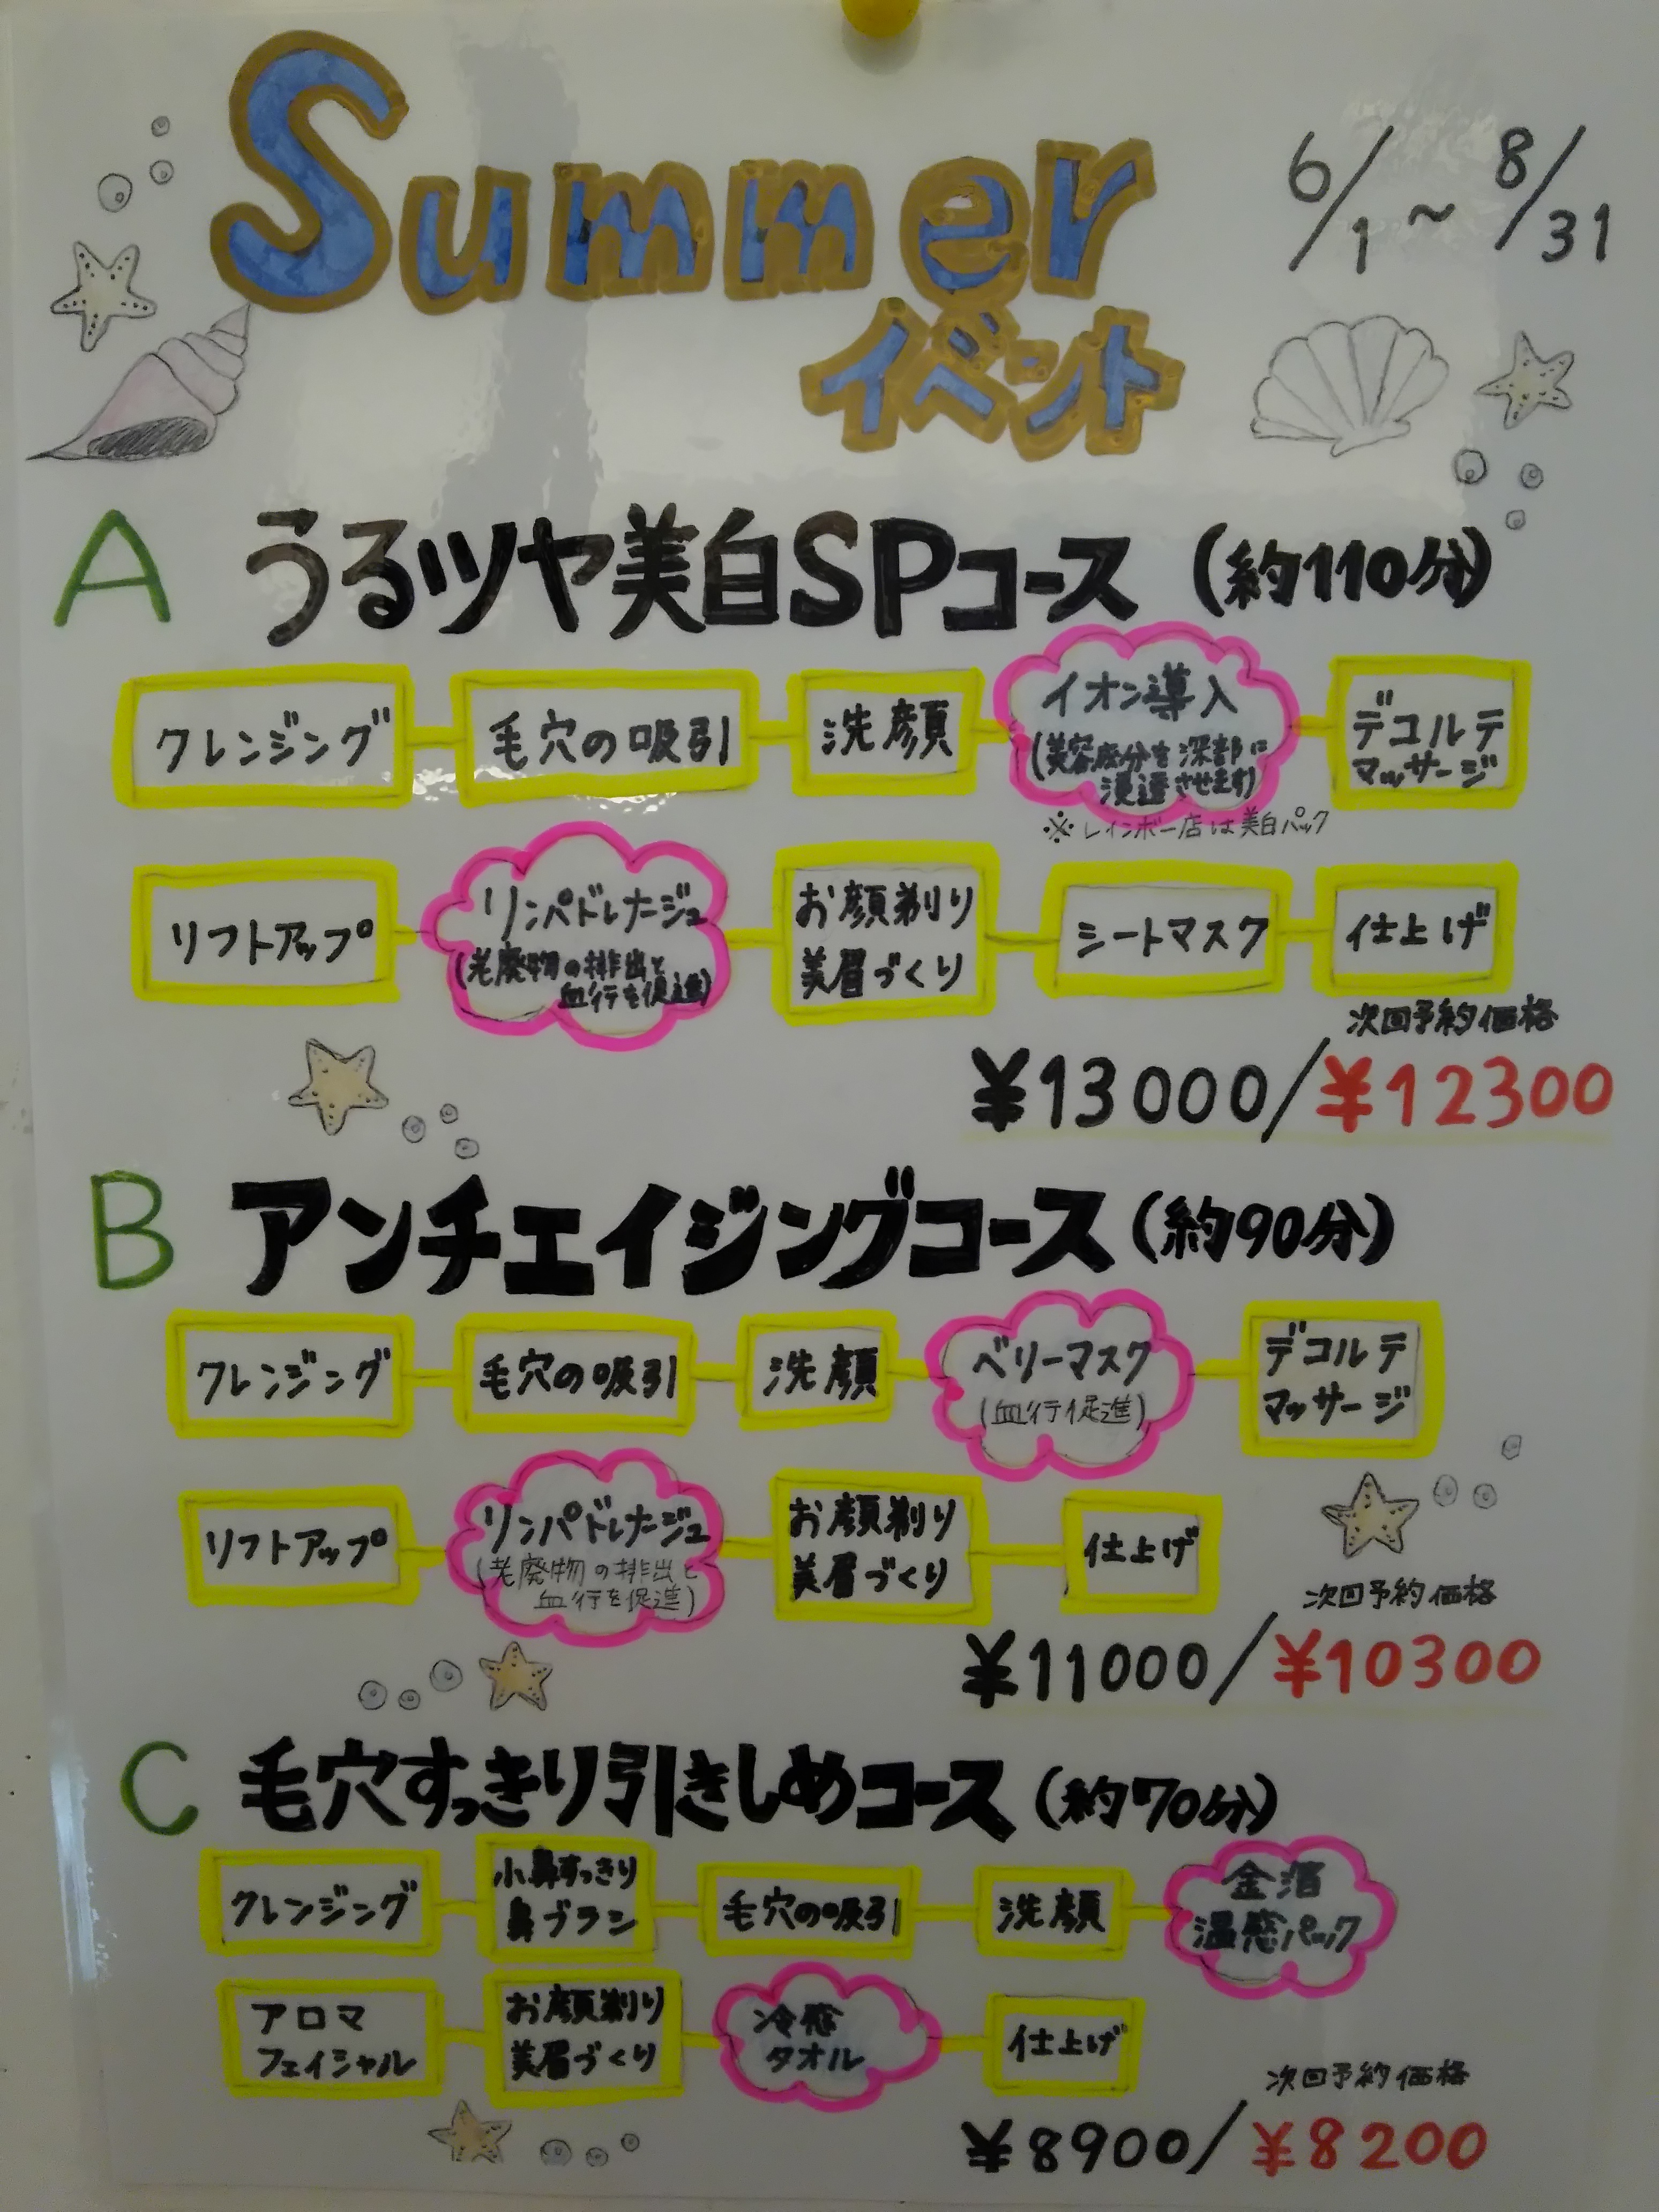 Summer
6/1～8/31
イベント
A うるツヤ美白SPコース (約110分)
クレンジング 毛穴の吸引 洗顔 イオン導入 デコルテ
(美容成分を深部に マッサージ
浸透させます)
※レインボー店は美白パック
リフトアップ リンパドレナージュ お顔剃り シートマスク 仕上げ
(老廃物の排出と 美眉づくり
血行を促進)
次回予約価格
¥13000/¥12300
B アンチエイジングコース (約90分)
クレンジング 毛穴の吸引 洗顔 ベリーマスク デコルテ
(血行促進) マッサージ
リフトアップ リンパドレナージュ お顔剃り 仕上げ
(老廃物の排出と 美眉づくり
血行を促進)
次回予約価格
¥11000/¥10300
C 毛穴すっきり引きしめコース (約70分)
クレンジング 小鼻すっきり 毛穴の吸引 洗顔 金箔
鼻ブラシ 温感パック
アロマ お顔剃り 冷感 仕上げ
フェイシャル 美眉づくり タオル
次回予約価格
¥8900/¥8200